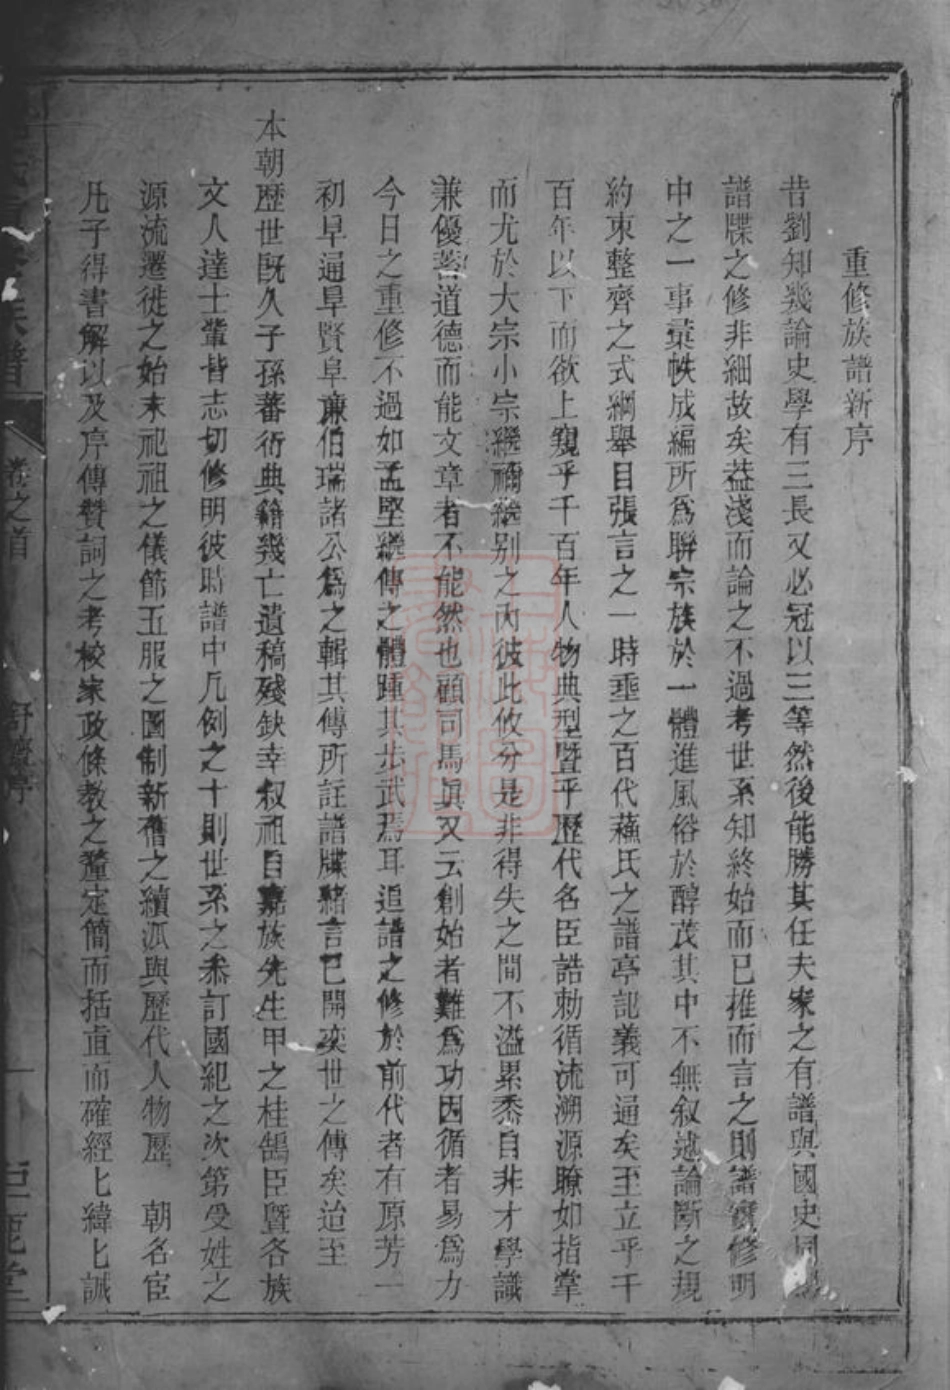 重修族譜新序
昔劉知幾論史學有三長又必冠以三等然後能勝其任夫家之有譜與國史同
譜牒之修非細故矣葢淺而論之不過考世系知終始而已推而言之則譜實修明
中之一事彚帙成編所爲聯宗族於一體進風俗於醇茂其中不無叙述論斷之規
約束整齊之式綱舉目張言之一時垂之百代蘓氏之譜亭記義可通矣至立乎千
百年以下而欲上窺乎千百年人物典型曁乎歷代名臣誥勅循流溯源瞭如指掌
而尤於大宗小宗繼禰繼别之内彼此攸分是非得失之間不溢累黍自非才學識
兼優蓄道德而能文章者不能然也顧司馬眞又云創始者難爲功因循者易爲力
今日之重修不過如孟堅繼傳之體踵其步武焉耳追譜之修於前代者有原芳一
初早通早賢阜廉伯瑞諸公爲之輯其傳所註譜牒緒言已開奕世之傳矣迨至
本朝歷世旣久子孫蕃衍典籍幾亡遺稿殘缺幸叔祖自嘉族先生甲之桂鵠臣曁各族
文人達士輩皆志切修明彼時譜中凡例之十則世系之叅訂國紀之次第受姓之
源流遷徙之始末祀祖之儀節五服之圖制新舊之續派與歷代人物歷 朝名宦
凡子得書解以及序傳贊詞之考校家政條教之釐定簡而括直而確經匕緯匕誠
族譜
卷之首
序
一
鹿堂